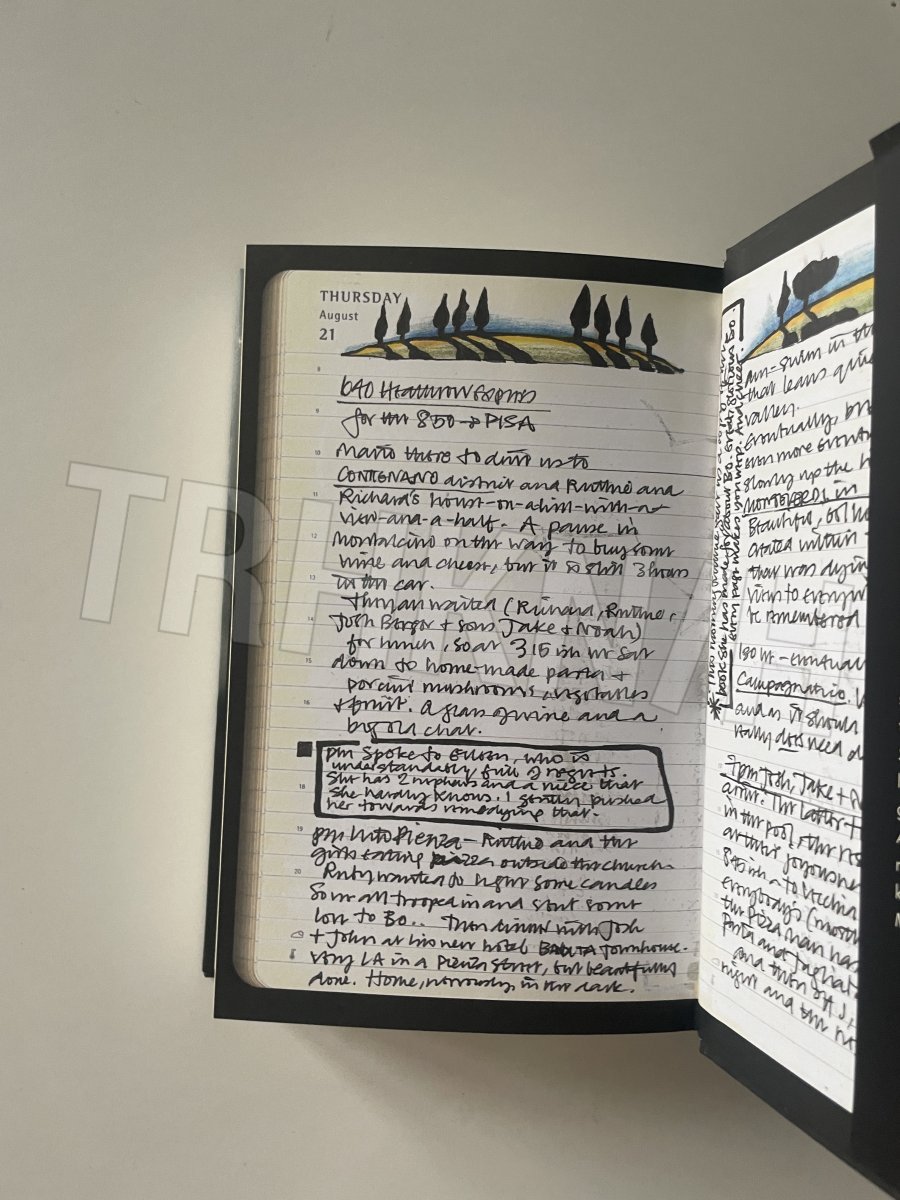 THURSDAY
August
21
640 Heathrow Express
for the 850 → PISA
Mario there to drive us to
CONTIGNANO district and Ruthie and
Richard's house-on-a-hill-with-a-
view-and-a-half. A pause in
Montalcino on the way to buy some
wine and cheese, but it is still 3 hours
in the car.
They all waited (Richard, Ruthie,
Josh Berger + sons Jake + Noah)
for lunch, so at 315 ish we sat
down to home-made pasta +
porcini mushrooms, vegetables
+ fruit. A glass of wine and a
big old chat.
pm Spoke to who is
understandably full of regrets.
She has 2 nephews and a niece that
she hardly knows. I gently pushed
her towards remedying that.
8pm Into Pienza - Ruthie and the
girls eating pizza outside the church
Ruby wanted to light some candles
So we all trooped in and sent some
love to Bo.. Then dinner with Josh
+ John at his new hotel Townhouse.
Very LA in a Pienza street, but beautifully
done. Home, nervously, in the dark.
book she has made for/about Bo. Great, glorious Bo.
every page makes you weep. And cheer!
am - swim in the
that leans
valley.
Eventually,
even more
slowly up the h
MONTEVERDI in
Beautiful,
created within
that was dying
views to
be remembered
Campagnatico.
and as it should
really does need
7pm Josh, Jake +
arrive. The latter +
in the pool
everybody's (most
the pizza man has
pasta and
and then off
night and the